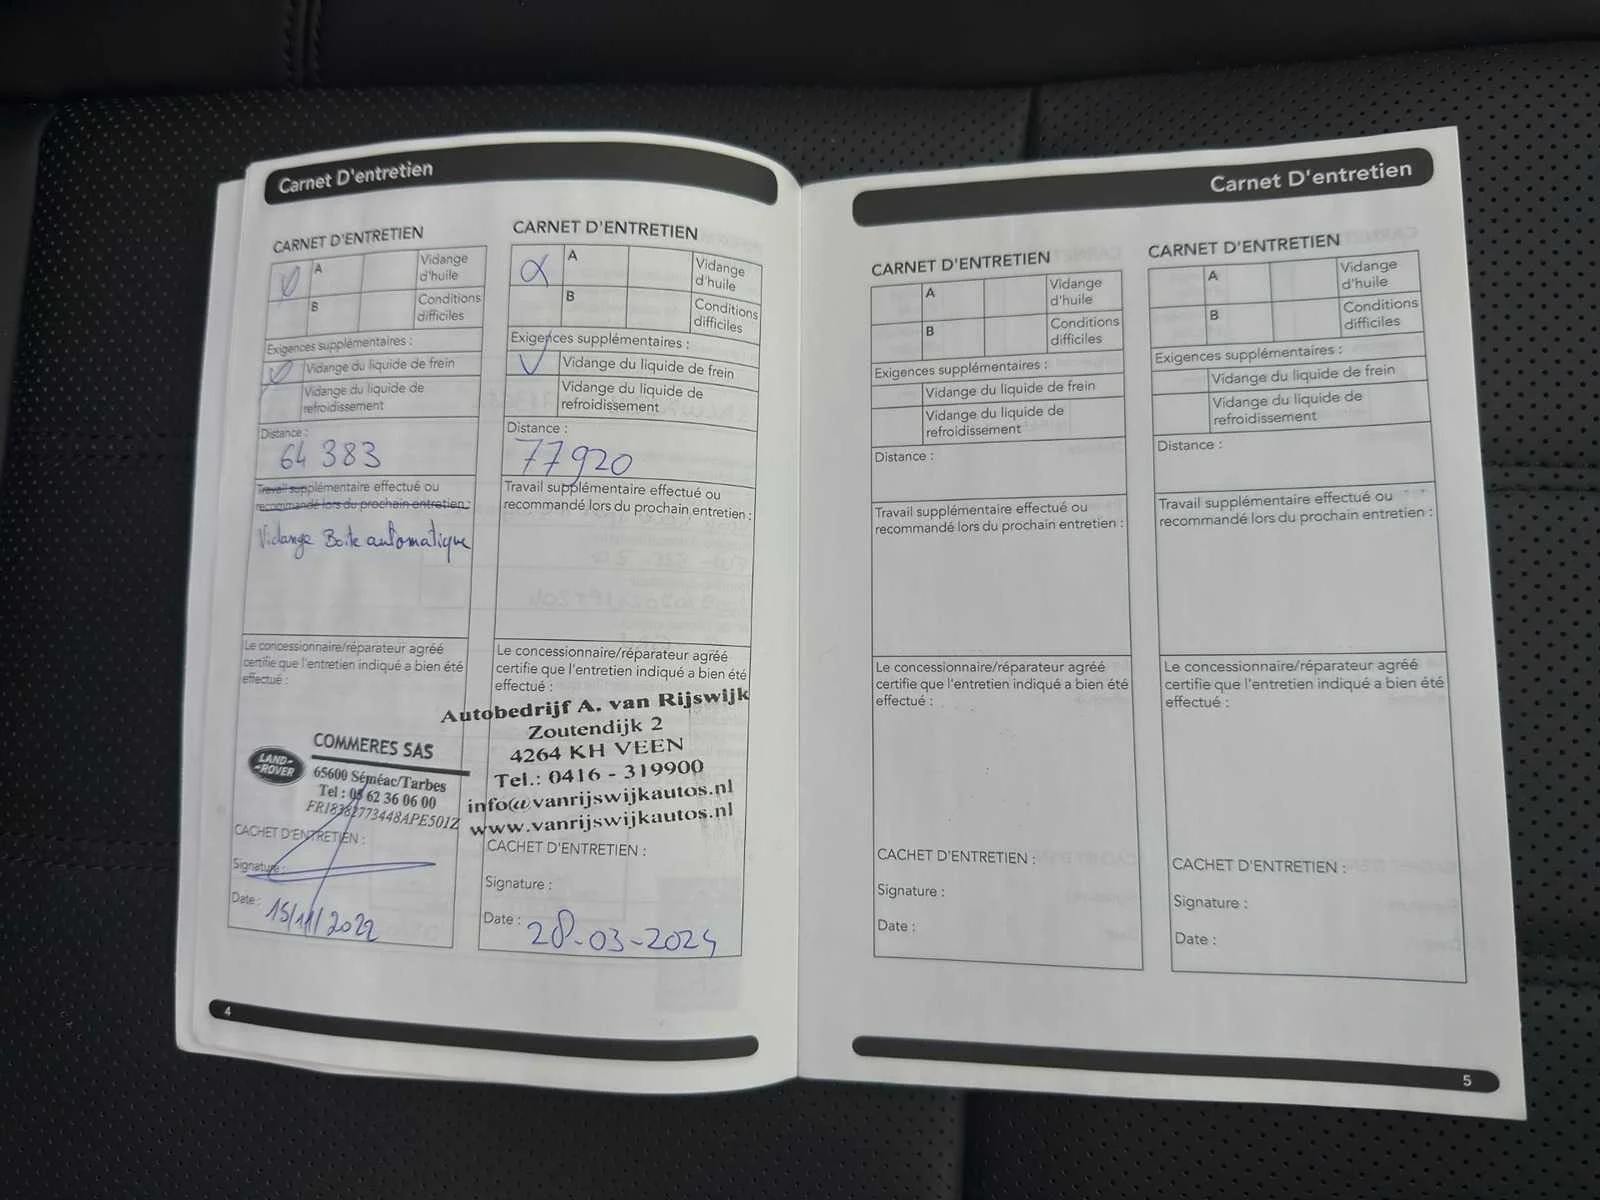 Carnet D'entretien
CARNET D'ENTRETIEN
A
Vidange
d'huile
B
Conditions
difficiles
Exigences supplémentaires :
Vidange du liquide de frein
Vidange du liquide de
refroidissement
Distance :
64 383
Travail supplémentaire effectué ou
recommandé lors du prochain entretien :
Vidange Boite automatique
Le concessionnaire/réparateur agréé
certifie que l'entretien indiqué a bien été
effectué :
LAND-
-ROVER
COMMERES SAS
65600 Séméac/Tarbes
Tel : 05 62 36 06 00
FR18382773448APE501Z
CACHET D'ENTRETIEN :
Signature :
Date : 15/11/2022
4
CARNET D'ENTRETIEN
A
Vidange
d'huile
B
Conditions
difficiles
Exigences supplémentaires :
Vidange du liquide de frein
Vidange du liquide de
refroidissement
Distance :
77920
Travail supplémentaire effectué ou
recommandé lors du prochain entretien :
Le concessionnaire/réparateur agréé
certifie que l'entretien indiqué a bien été
effectué :
Autobedrijf A. van Rijswijk
Zoutendijk 2
4264 KH VEEN
Tel.: 0416 - 319900
info@vanrijswijkautos.nl
www.vanrijswijkautos.nl
CACHET D'ENTRETIEN :
Signature :
Date : 28-03-2024
Carnet D'entretien
CARNET D'ENTRETIEN
A
Vidange
d'huile
B
Conditions
difficiles
Exigences supplémentaires :
Vidange du liquide de frein
Vidange du liquide de
refroidissement
Distance :
Travail supplémentaire effectué ou
recommandé lors du prochain entretien :
Le concessionnaire/réparateur agréé
certifie que l'entretien indiqué a bien été
effectué :
CACHET D'ENTRETIEN :
Signature :
Date :
CARNET D'ENTRETIEN
A
Vidange
d'huile
B
Conditions
difficiles
Exigences supplémentaires :
Vidange du liquide de frein
Vidange du liquide de
refroidissement
Distance :
Travail supplémentaire effectué ou
recommandé lors du prochain entretien :
Le concessionnaire/réparateur agréé
certifie que l'entretien indiqué a bien été
effectué :
CACHET D'ENTRETIEN :
Signature :
Date :
5